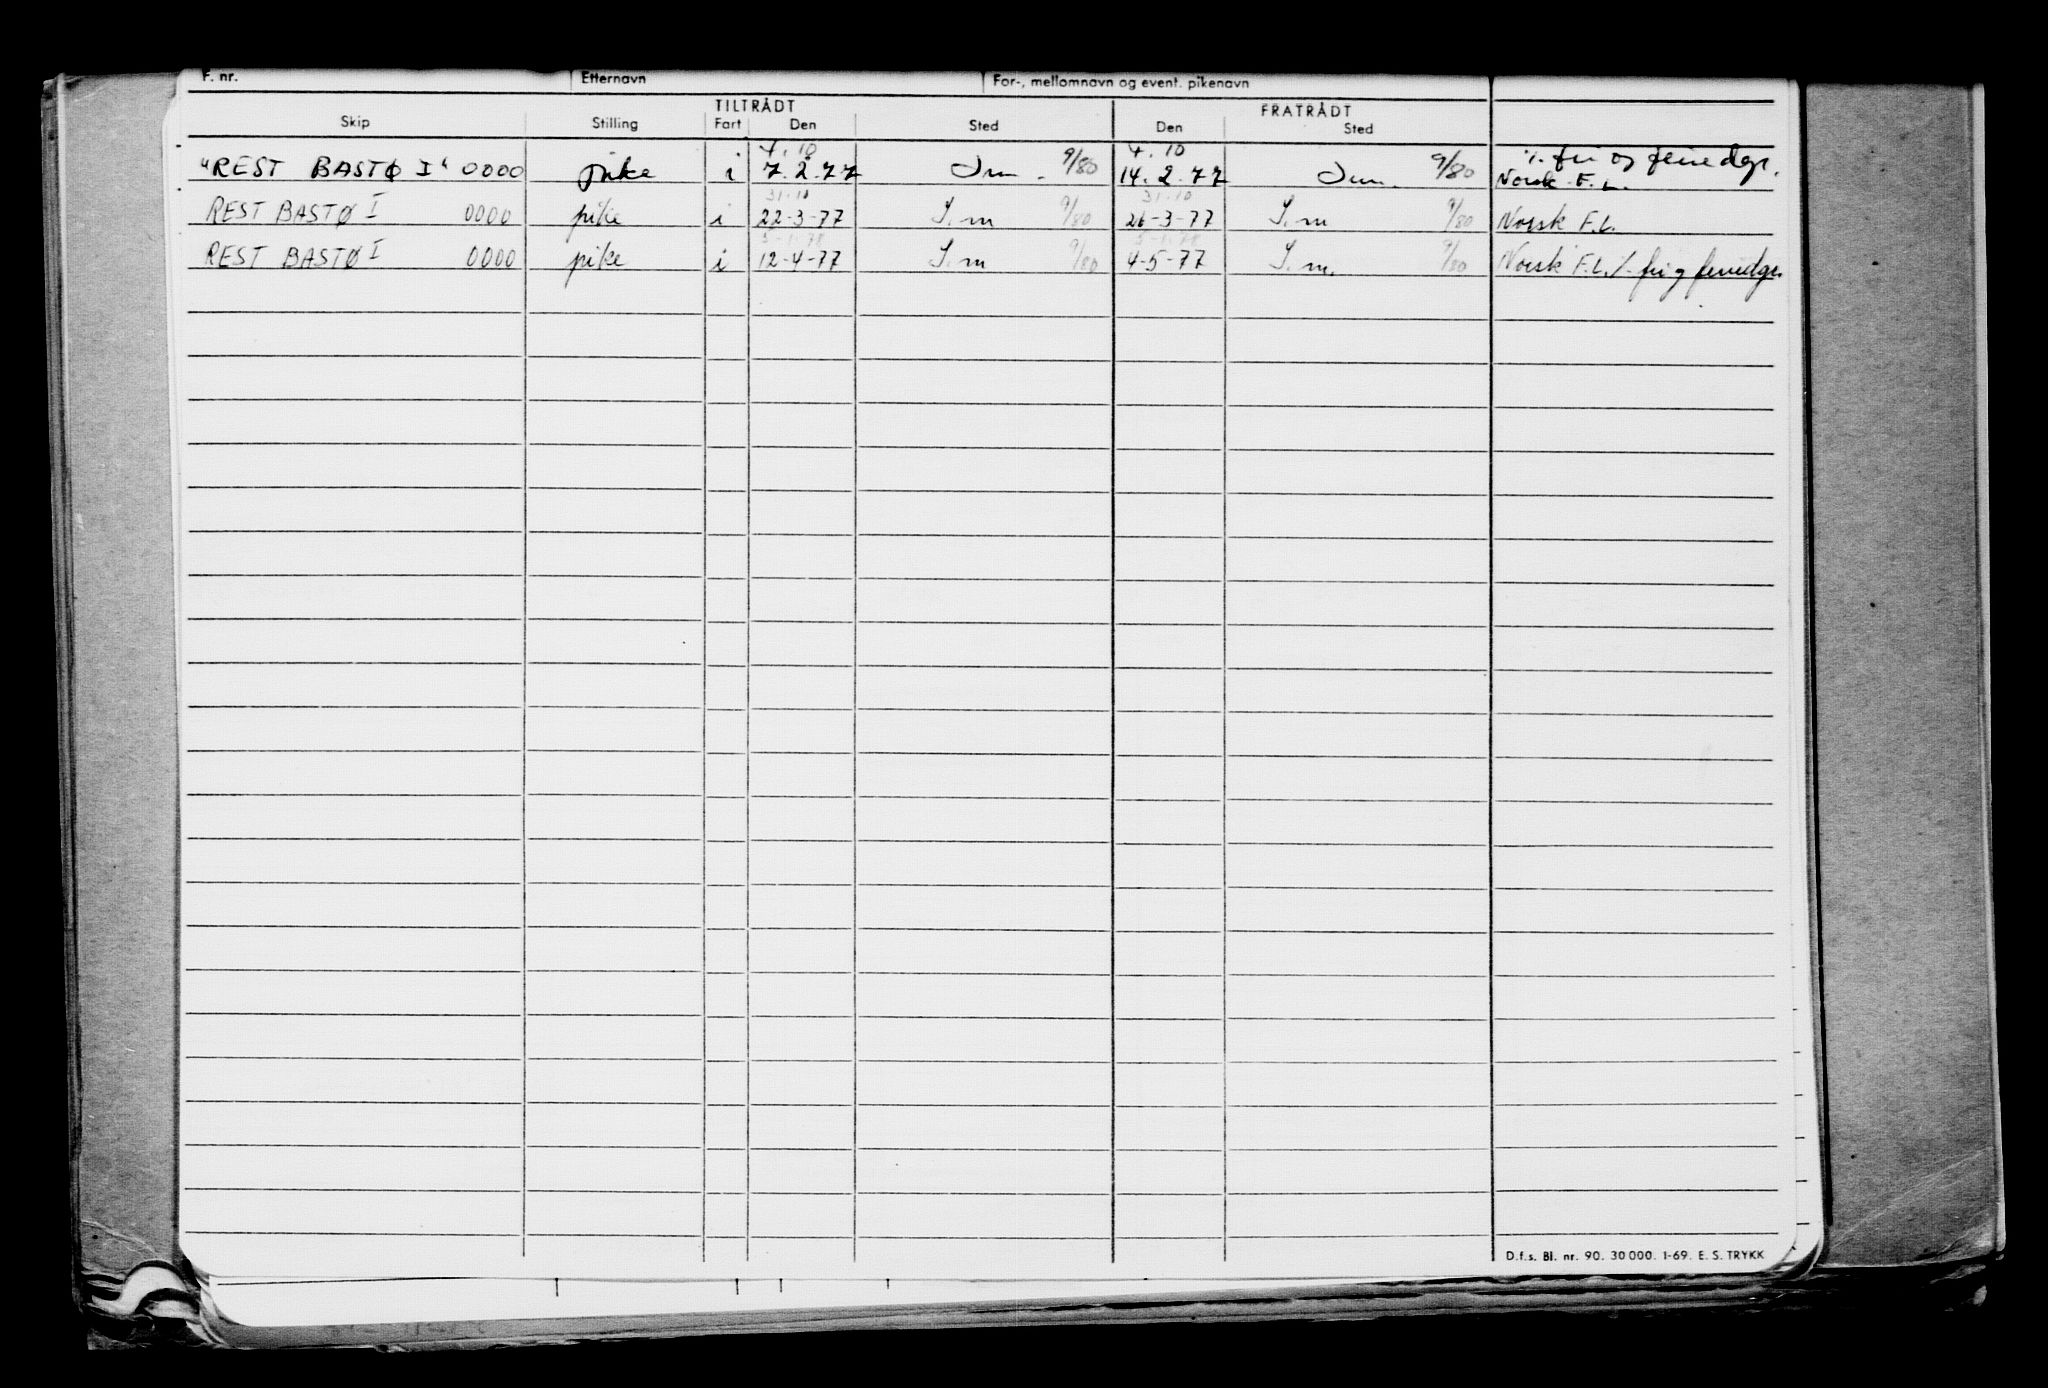 F. nr. Etternavn For-, mellomnavn og event. pikenavn
TILTRÅDT FRATRÅDT
Skip Stilling Fart Den Sted Den Sted
4.10 4.10 ./. fri og feriedgr.
"REST BASTØ I" 0000 pike i 7.2.77 9/80 14.2.77 9/80 Norsk F.L.
31.10 31.10
REST BASTØ I 0000 pike i 22-3-77 S.m 9/80 26-3-77 S.m 9/80 Norsk F.L.
5-1-78 5-1-78
REST BASTØ I 0000 pike i 12-4-77 S.m 9/80 4-5-77 S.m. 9/80 Norsk F.L. /. fri og feriedgr.
D.f.s. Bl. nr. 90. 30 000. 1-69. E. S. TRYKK